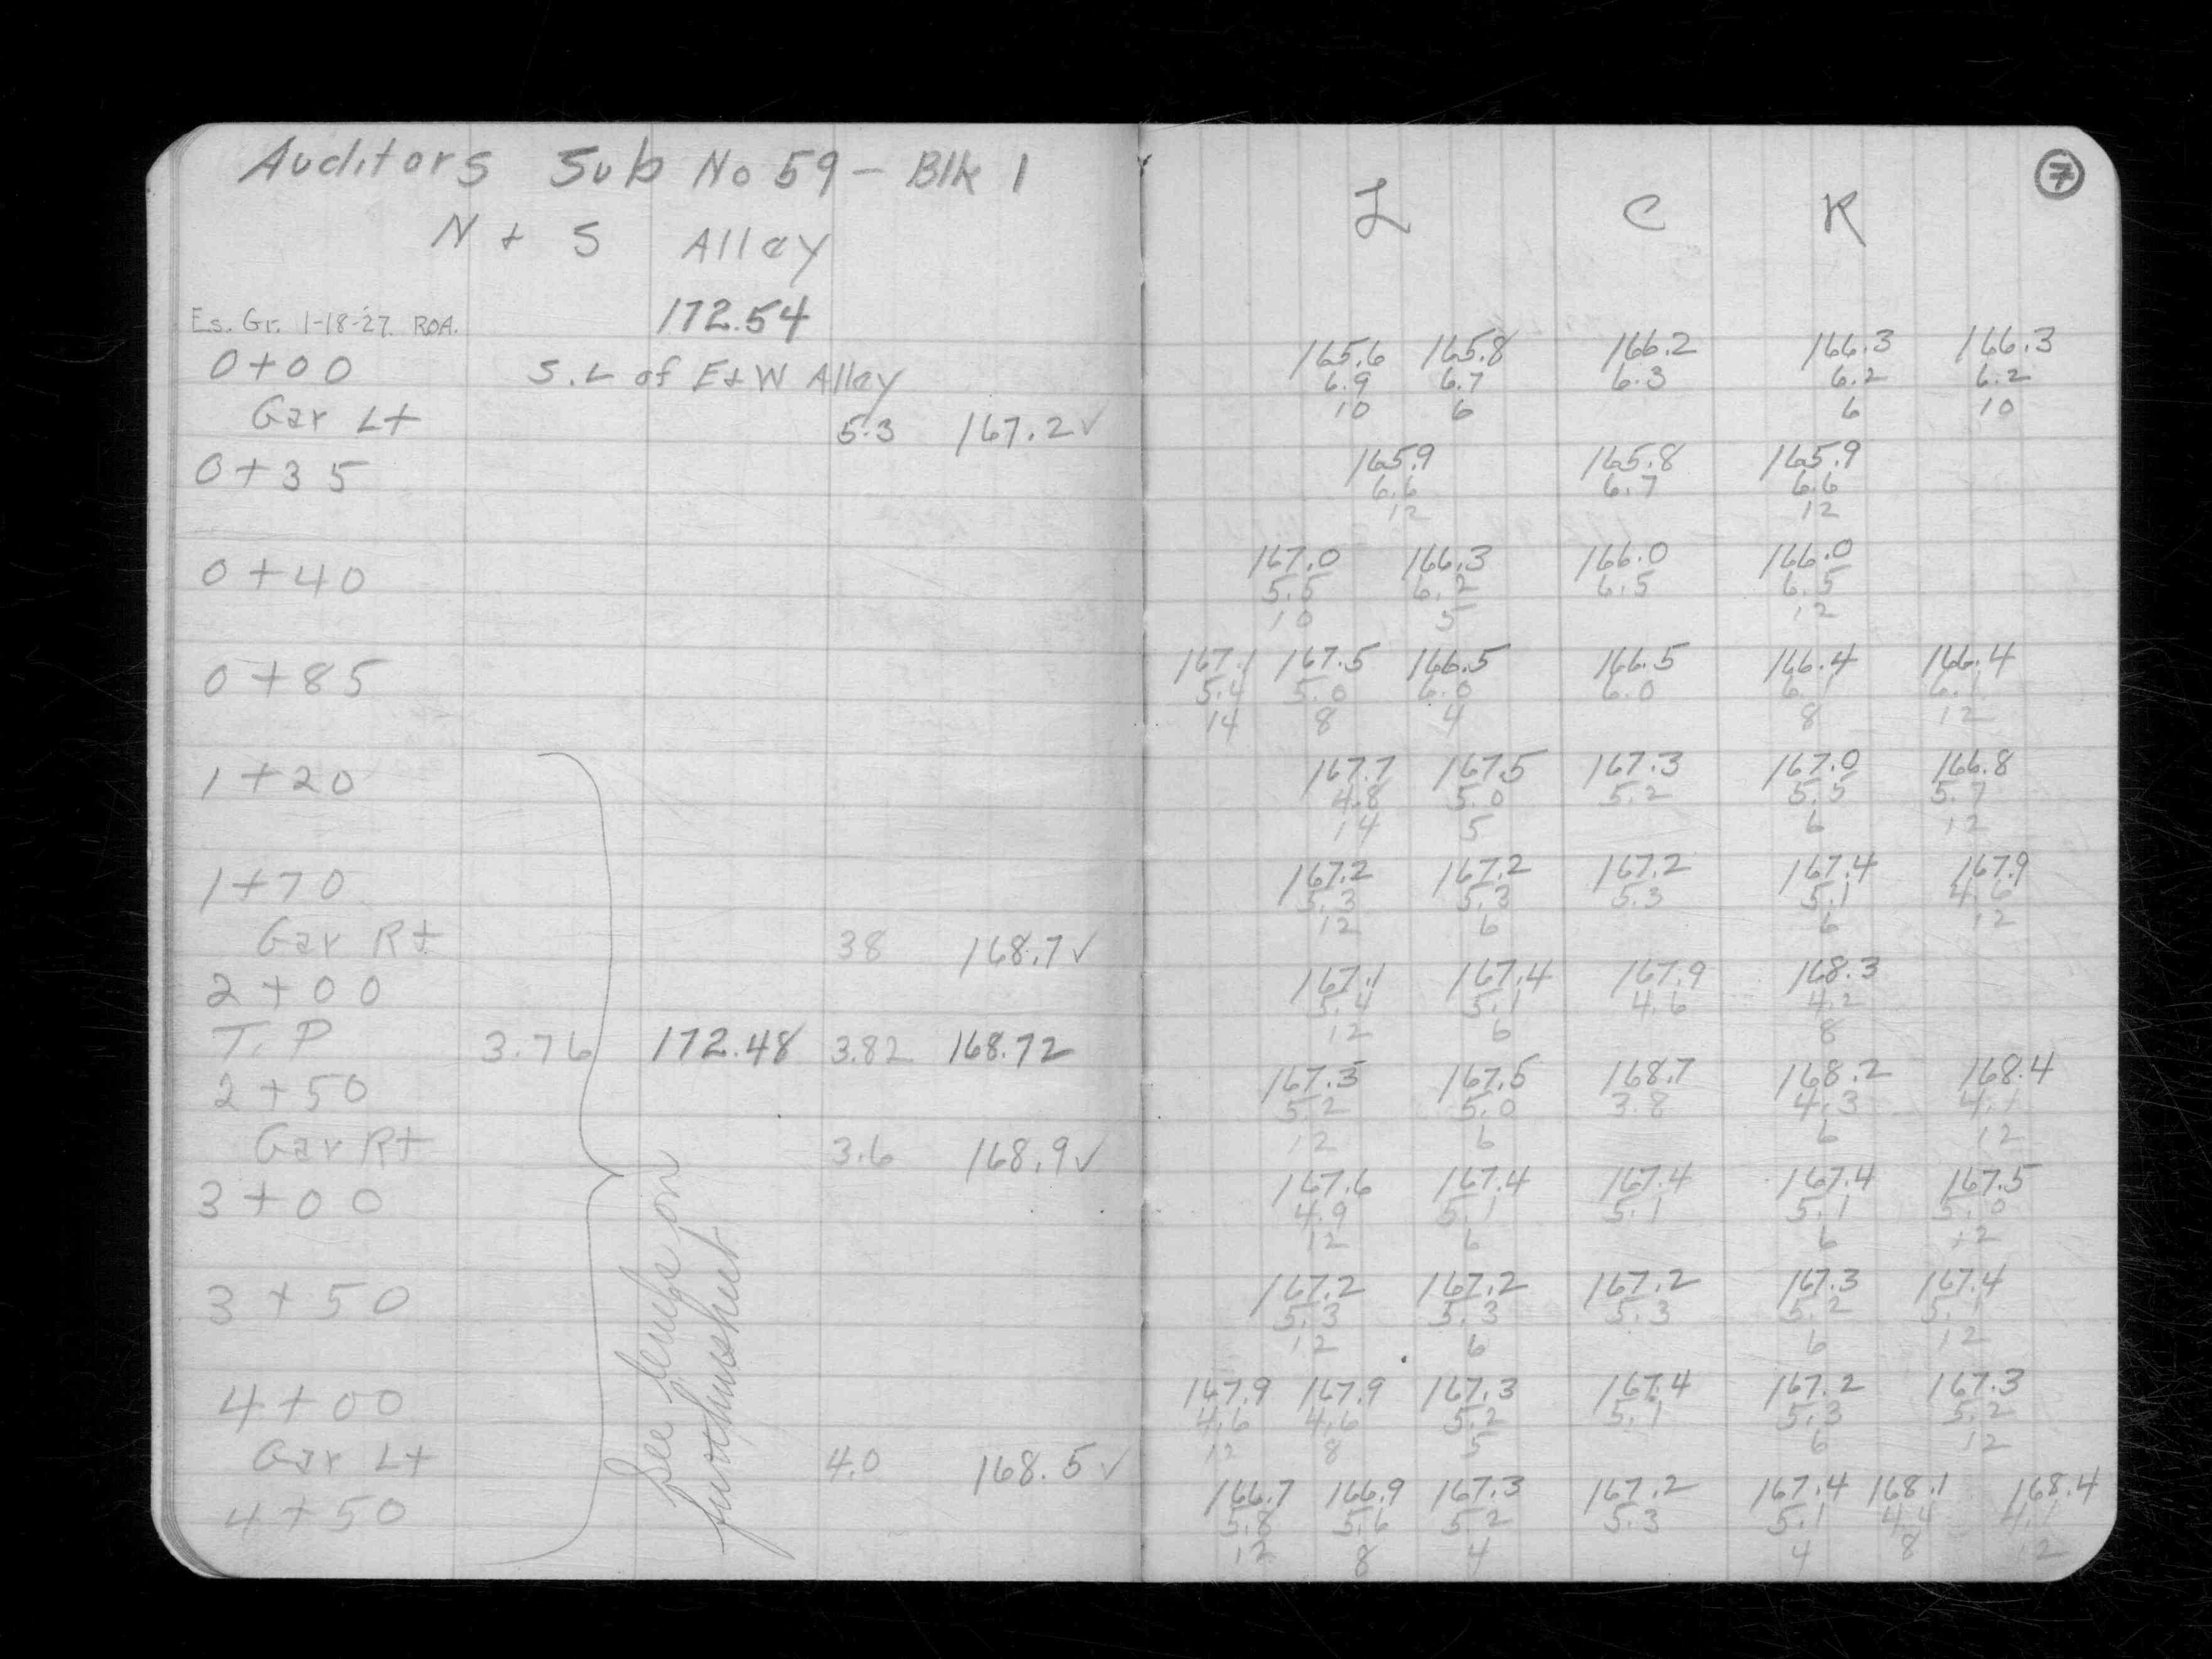 Auditors Sub No 59 - Blk 1
N + S Alley
Es. Gr. 1-18-27 ROA. 172.54
0+00 S.L of E+W Alley
Gar Lt 5.3 167.2 ✓
0+35
0+40
0+85
1+20
1+70
Gar Rt 38 168.7 ✓
2+00
T.P 3.76 172.48 3.82 168.72
2+50
Gar Rt 3.6 168.9 ✓
3+00
3+50
4+00
Gar Lt 4.0 168.5 ✓
4+50
See on
7
L C R
165.6 165.8 166.2 166.3 166.3
6.9 6.7 6.3 6.2 6.2
10 6 6 10
165.9 165.8 165.9
6.6 6.7 6.6
12 12
167.0 166.3 166.0 166.0
5.5 6.2 6.5 6.5
10 5 12
167.1 167.5 166.5 166.5 166.4 166.4
5.4 5.0 6.0 6.0 6.1 6.1
14 8 4 8 12
167.7 167.5 167.3 167.0 166.8
4.8 5.0 5.2 5.5 5.7
14 5 6 12
167.2 167.2 167.2 167.4 167.9
5.3 5.3 5.3 5.1 4.6
12 6 6 12
167.1 167.4 167.9 168.3
5.4 5.1 4.6 4.2
12 6 8
167.3 167.5 168.7 168.2 168.4
5.2 5.0 3.8 4.3 4.1
12 6 6 12
167.6 167.4 167.4 167.4 167.5
4.9 5.1 5.1 5.1 5.0
12 6 6 12
167.2 167.2 167.2 167.3 167.4
5.3 5.3 5.3 5.2 5.1
12 6 6 12
167.9 167.9 167.3 167.4 167.2 167.3
4.6 4.6 5.2 5.1 5.3 5.2
12 8 5 6 12
166.7 166.9 167.3 167.2 167.4 168.1 168.4
5.8 5.6 5.2 5.3 5.1 4.4 4.1
12 8 4 4 8 12